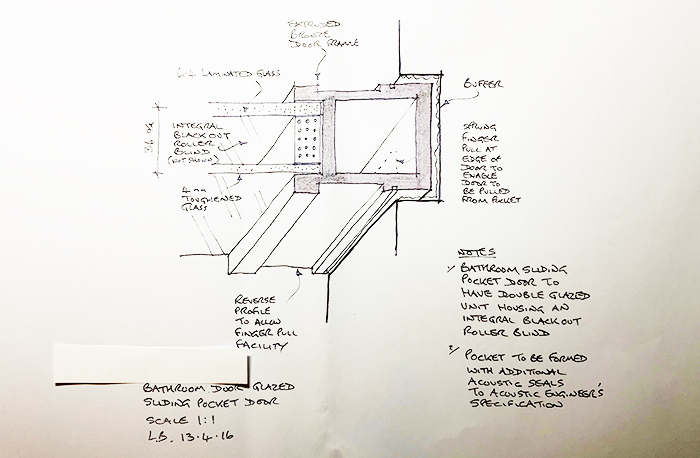 EXTRUDED
BRONZE
DOOR FRAME
6.4 LAMINATED GLASS
BUFFER
36 mm
INTEGRAL
BLACKOUT
ROLLER
BLIND
(NOT SHOWN)
SPRUNG
FINGER
PULL AT
EDGE OF
DOOR TO
ENABLE
DOOR TO
BE PULLED
FROM POCKET
4mm
TOUGHENED
GLASS
REVERSE
PROFILE
TO ALLOW
FINGER PULL
FACILITY
NOTES
1/ BATHROOM SLIDING
POCKET DOOR TO
HAVE DOUBLE GLAZED
UNIT HOUSING AN
INTEGRAL BLACKOUT
ROLLER BLIND
2/ POCKET TO BE FORMED
WITH ADDITIONAL
ACOUSTIC SEALS
TO ACOUSTIC ENGINEER'S
SPECIFICATION
BATHROOM DOOR GLAZED
SLIDING POCKET DOOR
SCALE 1:1
L.B. 13.4.16